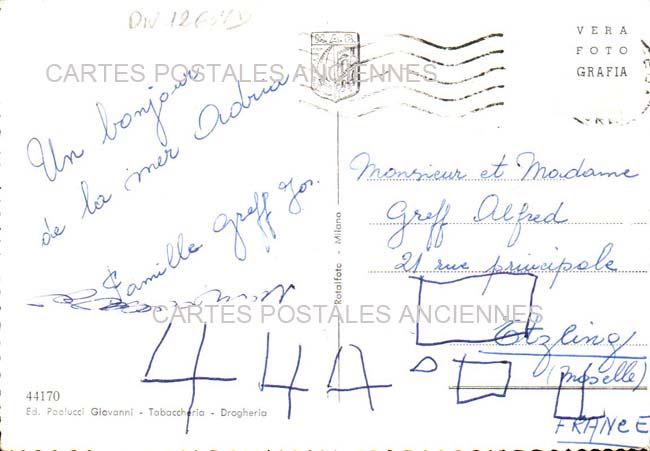 VERA
FOTO
GRAFIA
CARTES POSTALES ANCIENNES
Un bonjour
de la mer Adria
Famille Greff Jos.
Monsieur et Madame
Greff Alfred
21 rue principale
Etzling
(Moselle)
FRANCE
CARTES POSTALES ANCIENNES
444
Rotalfoto - Milano
44170
Ed. Paolucci Giovanni - Tabaccheria - Drogheria